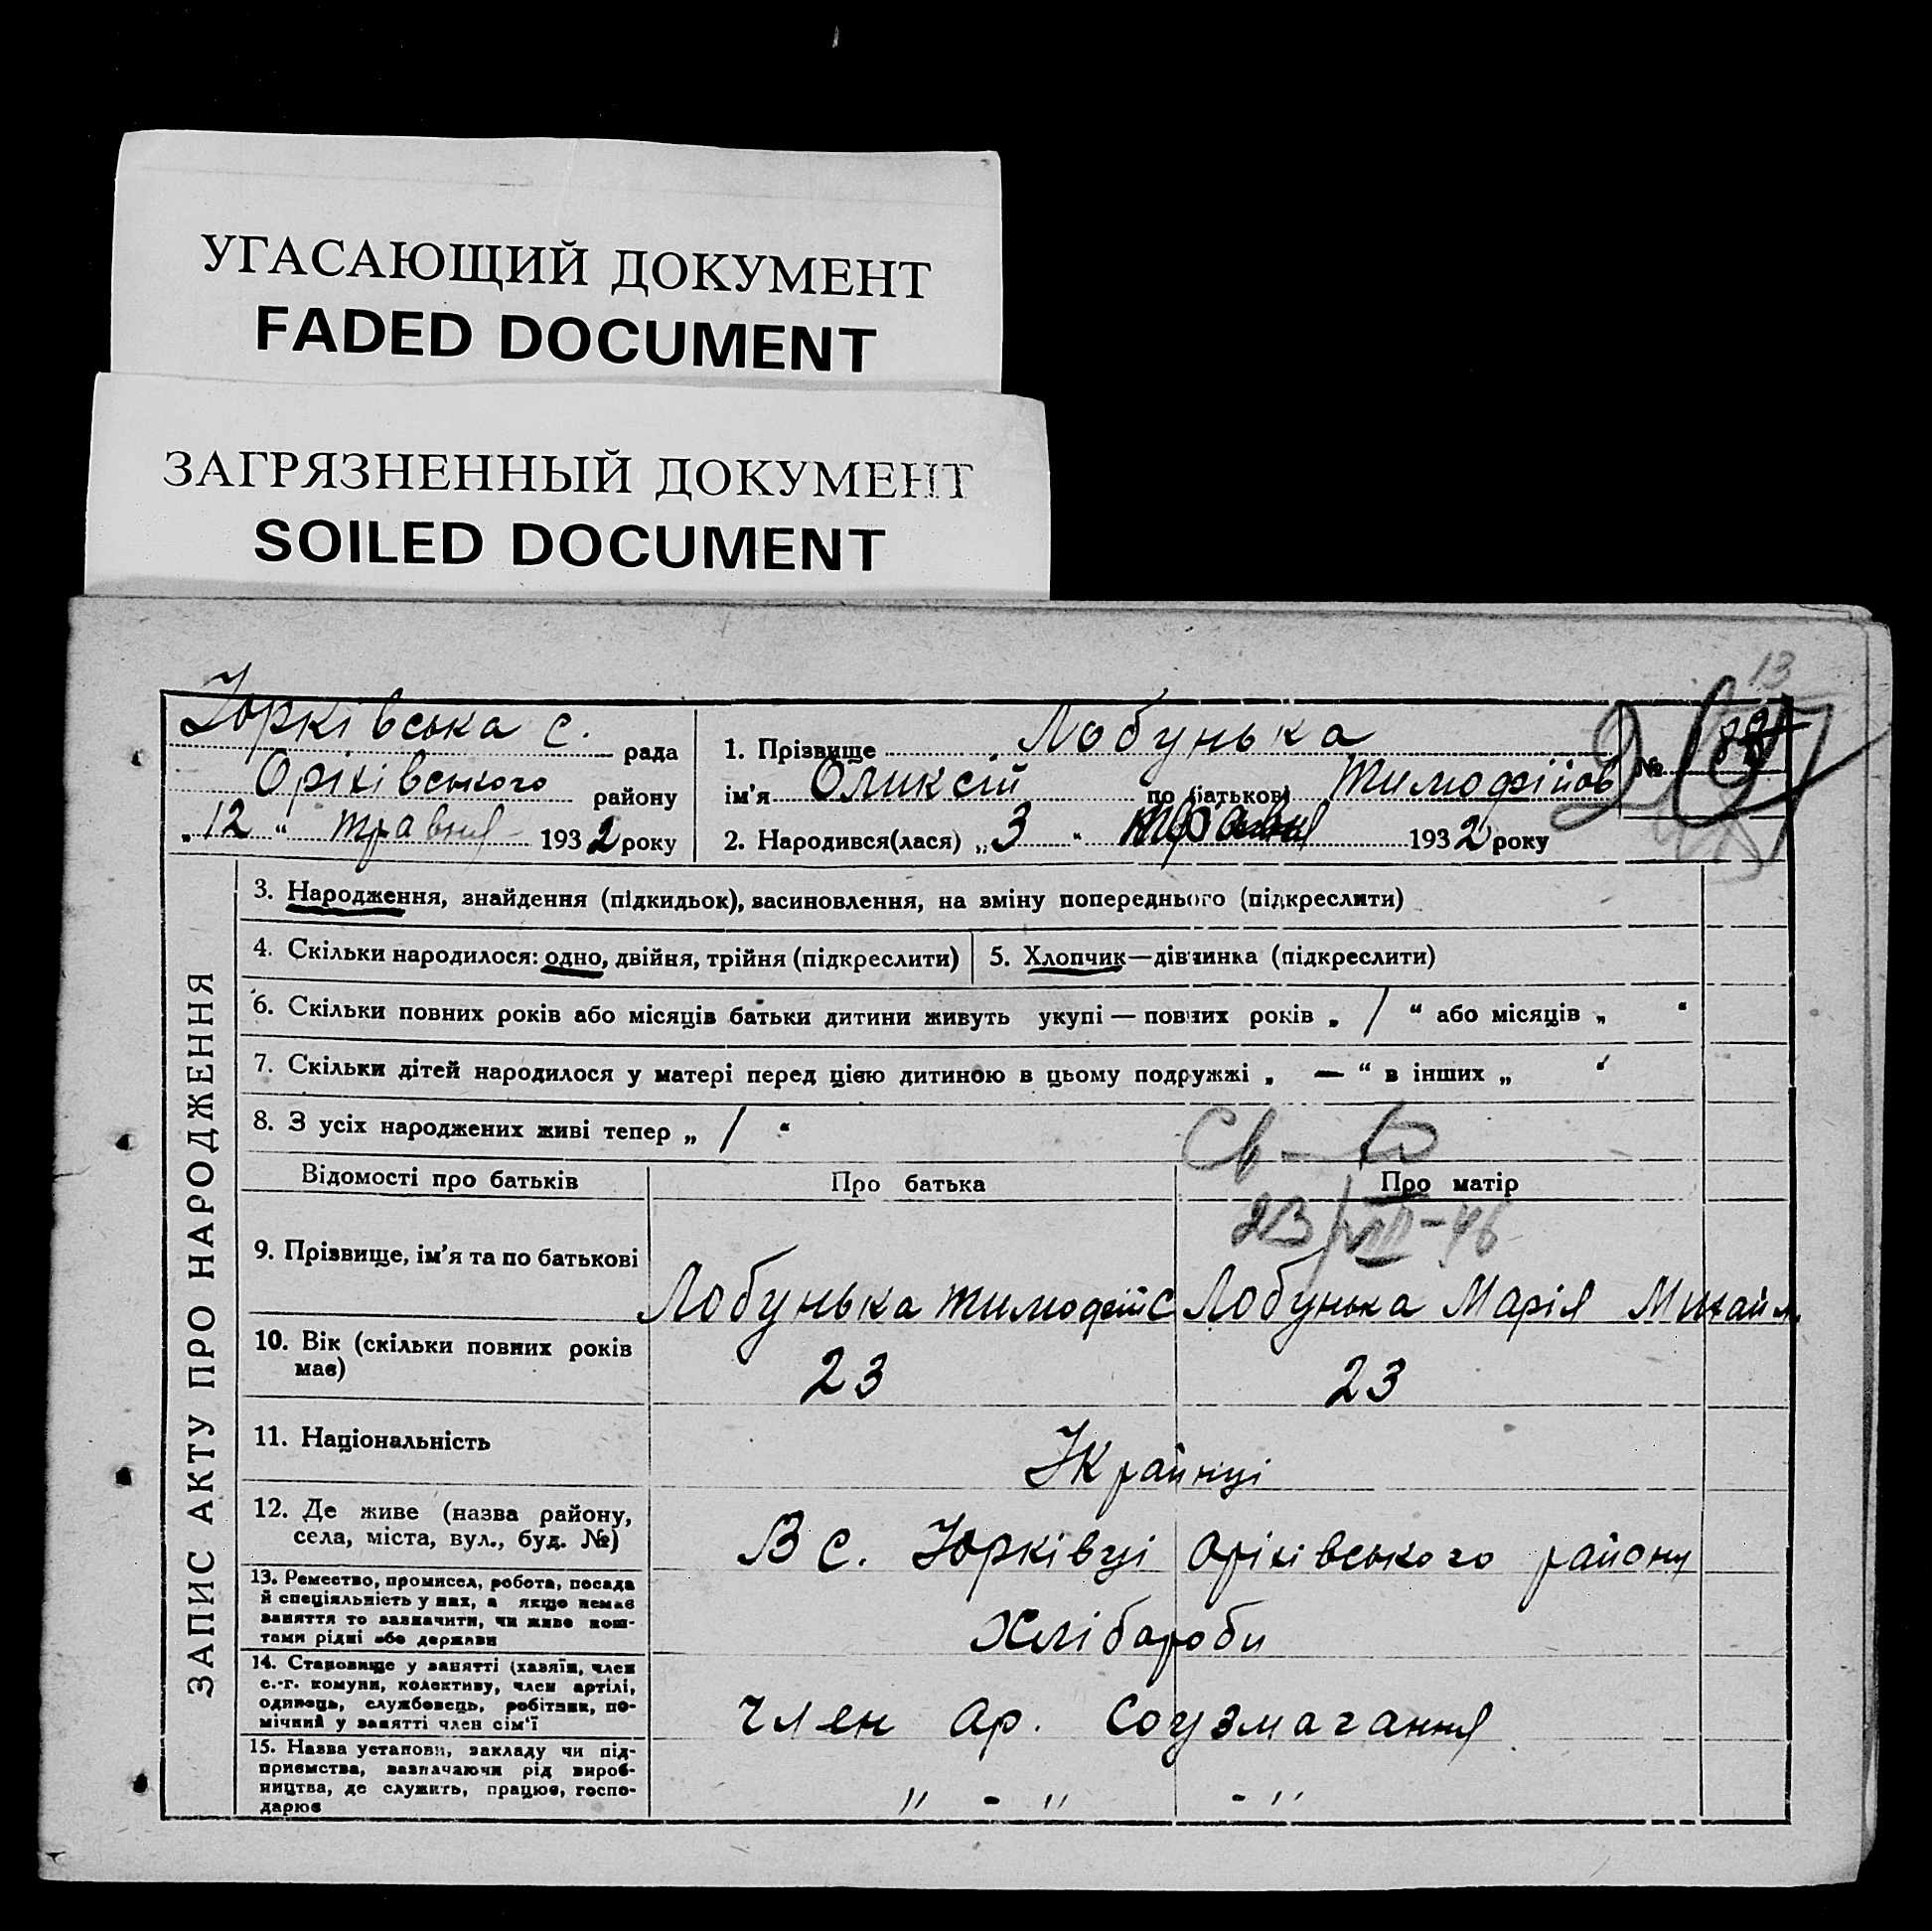 УГАСАЮЩИЙ ДОКУМЕНТ
FADED DOCUMENT
ЗАГРЯЗНЕННЫЙ ДОКУМЕНТ
SOILED DOCUMENT
13
Юрківська с. рада
Оріхівського району
„12“ травня 1932 року
1. Прізвище Лобунька
ім’я Оликсій по батькові Тимофійов
2. Народився(лася) „3“ травня 1932 року
№
ЗАПИС АКТУ ПРО НАРОДЖЕННЯ
3. Народження, знайдення (підкидьок), засиновлення, на зміну попереднього (підкреслити)
4. Скільки народилося: одно, двійня, трійня (підкреслити)
5. Хлопчик—дівчинка (підкреслити)
6. Скільки повних років або місяців батьки дитини живуть укупі — повних років „ / “ або місяців „ “
7. Скільки дітей народилося у матері перед цією дитиною в цьому подружжі „ — “ в інших „ “
8. З усіх народжених живі тепер „ / “
Св-во
Відомості про батьків Про батька Про матір
23/VIII-46
9. Прізвище, ім’я та по батькові
Лобунька Тимофій С Лобунька Марія Михайл.
10. Вік (скільки повних років
має)
23 23
11. Національність
Українці
12. Де живе (назва району,
села, міста, вул., буд. №)
В с. Юрківці Оріхівського району
13. Ремество, промисел, робота, посада
й спеціяльність у них, а якщо немає
заняття то зазначити, чи живе кош-
тами рідні або держави
Хлібороби
14. Становище у занятті (хазяїн, член
с.-г. комуни, колективу, член артілі,
одинець, службовець, робітник, по-
мічний у занятті член сім’ї
Член ар. Соузмагання
15. Назва установи, закладу чи під-
приємства, зазначаючи рід вироб-
ництва, де служить, працює, госпо-
дарює
" - " - "